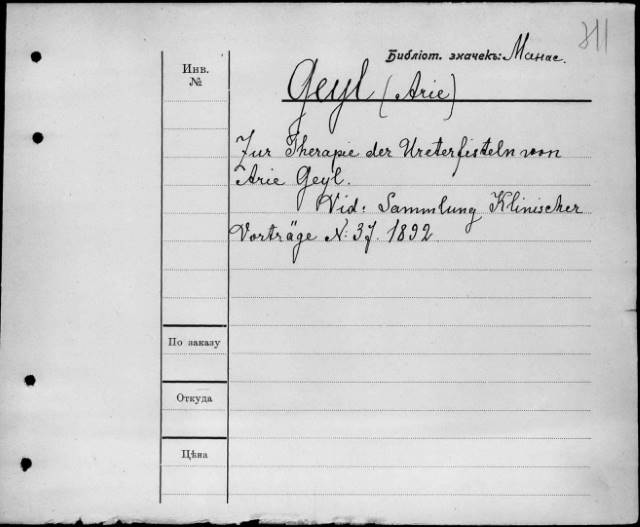 811
Библіот. значекъ: Манас.
Инв.
№
Geyl (Arie)
Zur Therapie der Ureterfisteln von
Arie Geyl.
Vid: Sammlung Klinischer
Vorträge N: 37. 1892
По заказу
Откуда
Цѣна